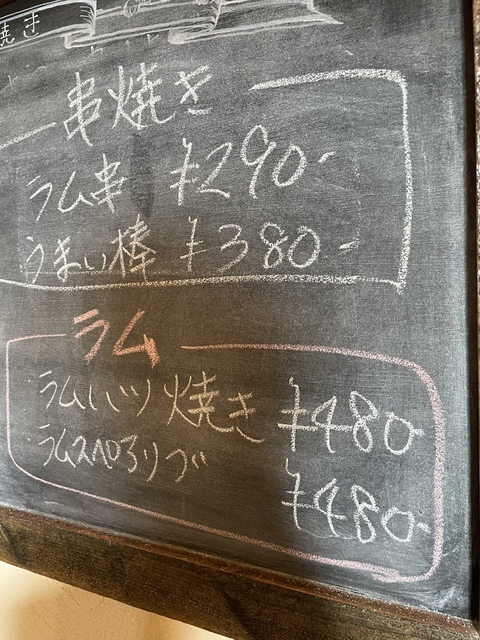 焼き
串焼き
ラム串 ¥290-
うまい棒 ¥380-
ラム
ラムハツ焼き ¥480-
ラムスペアリブ ¥480-